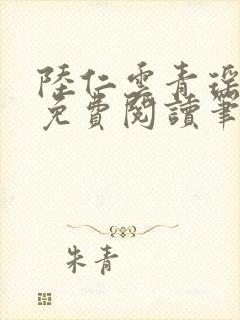 陸仁雲青瑶
免費閱讀筆
朱青